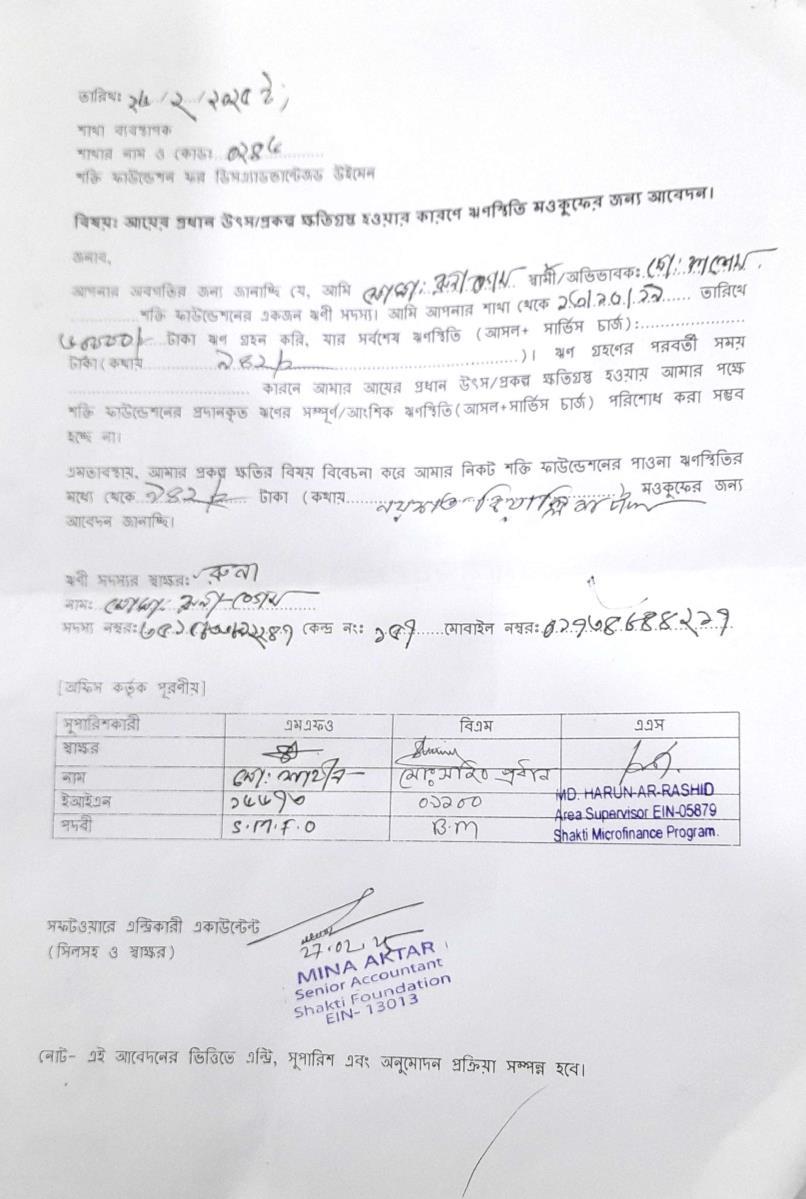 তারিখঃ ২৬/২/২০২৫ ইং
শাখা ব্যবস্থাপক
শাখার নাম ও কোডঃ ০২৪৬
শক্তি ফাউন্ডেশন ফর ডিসএ্যাডভান্টেজড উইমেন
বিষয়ঃ আয়ের প্রধান উৎস/প্রকল্প ক্ষতিগ্রস্থ হওয়ার কারণে ঋণস্থিতি মওকুফের জন্য আবেদন।
জনাব,
আপনার অবগতির জন্য জানাচ্ছি যে, আমি মোছাঃ রুনা বেগম স্বামী/অভিভাবকঃ মোঃ
শক্তি ফাউন্ডেশনের একজন ঋণী সদস্য। আমি আপনার শাখা থেকে তারিখে
টাকা ঋণ গ্রহন করি, যার সর্বশেষ ঋণস্থিতি (আসল+ সার্ভিস চার্জ):
টাকা (কথায় ৯৪২/= )। ঋণ গ্রহণের পরবর্তী সময়
কারনে আমার আয়ের প্রধান উৎস/প্রকল্প ক্ষতিগ্রস্থ হওয়ায় আমার পক্ষে
শক্তি ফাউন্ডেশনের প্রদানকৃত ঋণের সম্পূর্ণ/আংশিক ঋণস্থিতি(আসল+সার্ভিস চার্জ) পরিশোধ করা সম্ভব
হচ্ছে না।
এমতাবস্থায়, আমার প্রকল্প ক্ষতির বিষয় বিবেচনা করে আমার নিকট শক্তি ফাউন্ডেশনের পাওনা ঋণস্থিতির
মধ্যে থেকে ৯৪২/= টাকা (কথায় নয়শত বিয়াল্লিশ টাকা মওকুফের জন্য
আবেদন জানাচ্ছি।
ঋণী সদস্যর স্বাক্ষরঃ রুনা
নামঃ মোছাঃ রুনা বেগম
সদস্য নম্বরঃ কেন্দ্র নংঃ ১৫৭ মোবাইল নম্বরঃ
[অফিস কর্তৃক পূরণীয়]
সুপারিশকারী এমএফও বিএম এএস
স্বাক্ষর
নাম মোঃ মোঃ
ইআইএন
পদবী S.M.F.O B.M
MD. HARUN-AR-RASHID
Area Supervisor EIN-05879
Shakti Microfinance Program.
সফটওয়ারে এন্ট্রিকারী একাউন্টেন্ট
(সিলসহ ও স্বাক্ষর)
27.02.25
MINA AKTAR
Senior Accountant
Shakti Foundation
EIN- 13013
নোট- এই আবেদনের ভিত্তিতে এন্ট্রি, সুপারিশ এবং অনুমোদন প্রক্রিয়া সম্পন্ন হবে।